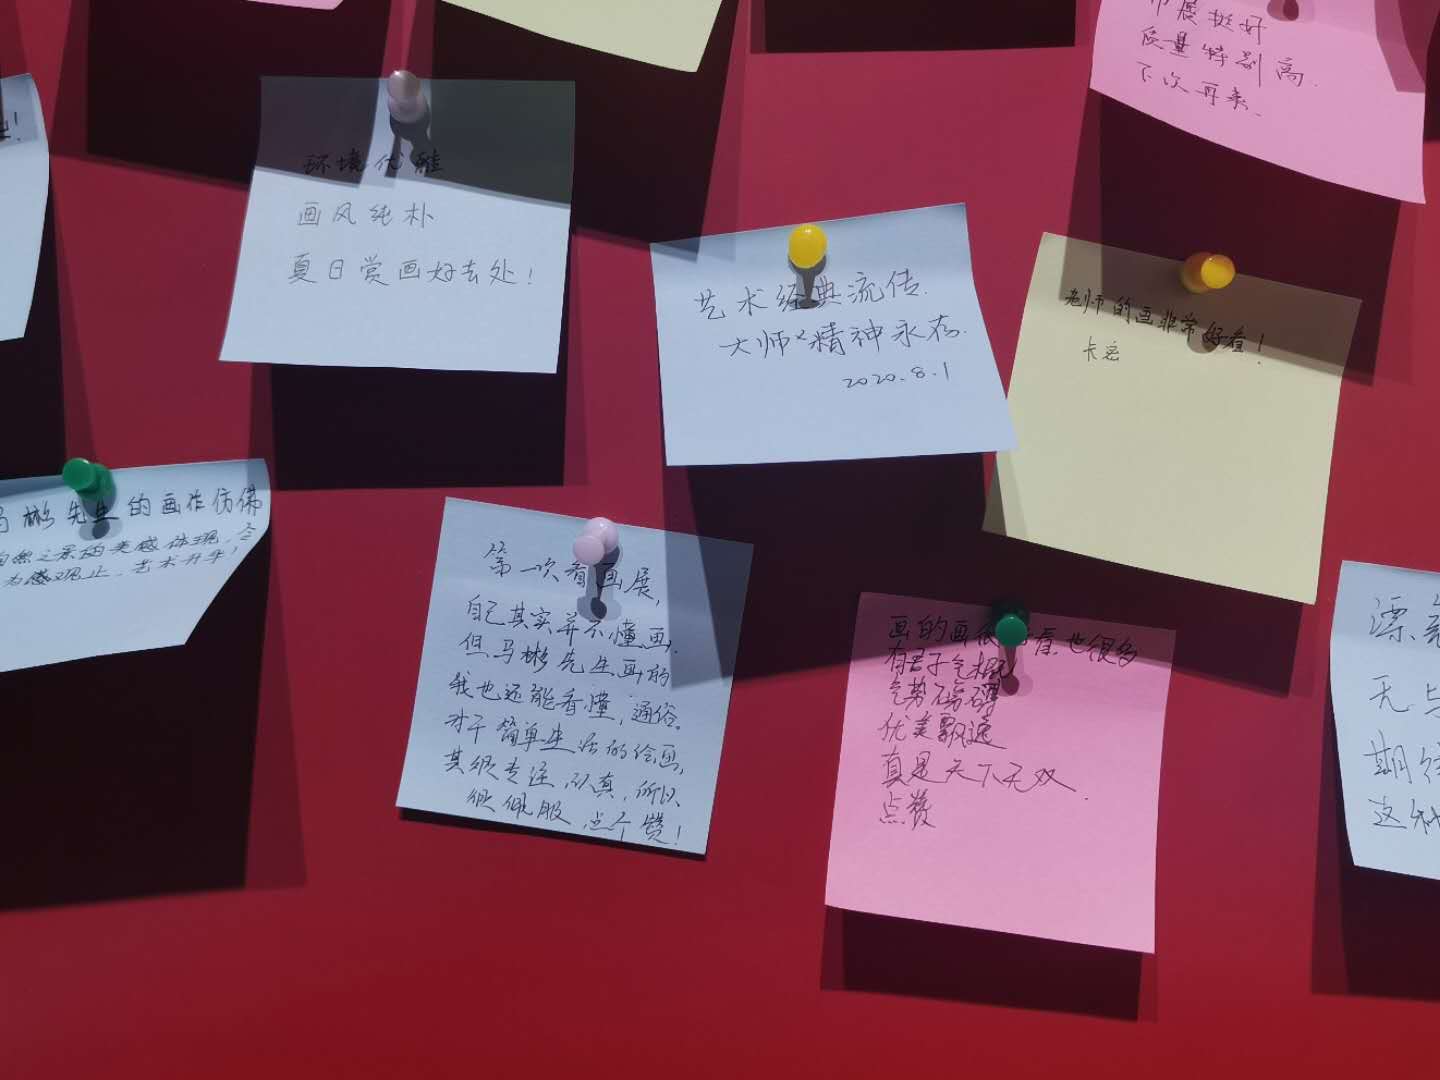 环境优雅
画风纯朴
夏日赏画好去处!
展挺好
质量特别高.
下次再来.
艺术经典流传.
大师精神永存.
2020.8.1
老师的画非常好看!
彬先生的画作仿佛
自然之景的美感体现,令
为叹观止.艺术升华!
第一次看画展,
自己其实并不懂画.
但马彬先生画的
我也还能看懂,通俗.
对于简单生活的绘画,
其很专注,认真,所以
很佩服 点个赞!
画的画很 看,也很多
有君子气概
气势磅礴
优美飘逸
真是天下无双.
点赞
漂
无与
期待
这种